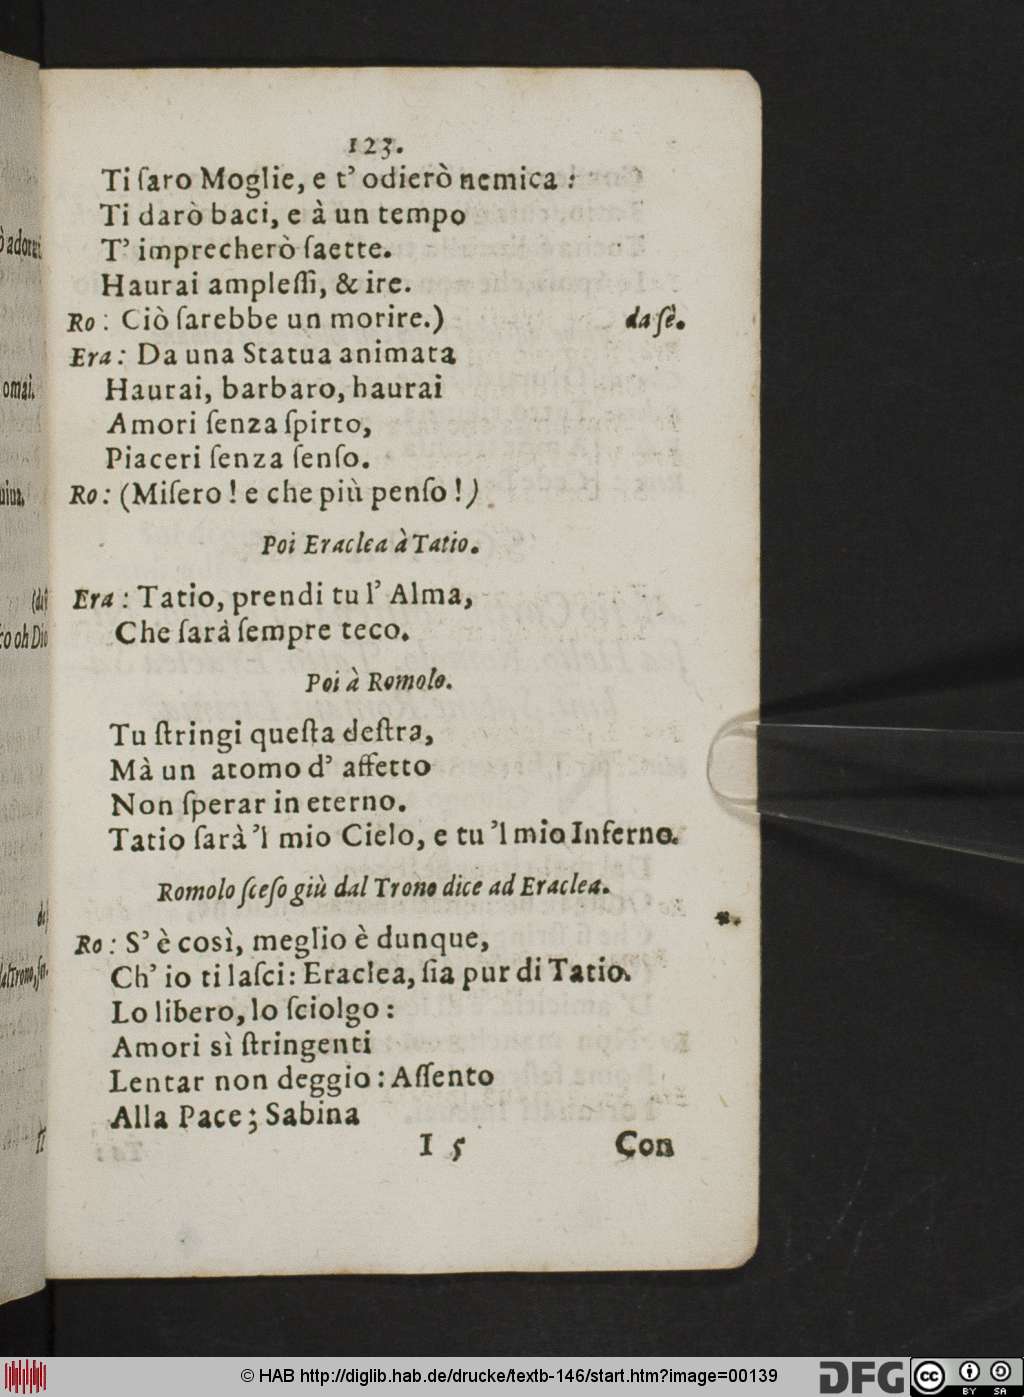 123.
Ti ſaro Moglie, e t' odierò nemica :
Ti darò baci, e à un tempo
T' imprecherò ſaette.
Haurai ampleſſi, & ire.
Ro : Ciò ſarebbe un morire.) da ſè.
Era : Da una Statua animata
Haurai, barbaro, haurai
Amori ſenza ſpirto,
Piaceri ſenza ſenſo.
Ro : (Miſero ! e che più penſo !)
Poi Eraclea à Tatio.
Era : Tatio, prendi tu l' Alma,
Che ſarà ſempre teco.
Poi à Romolo.
Tu ſtringi queſta deſtra,
Mà un atomo d' affetto
Non ſperar in eterno.
Tatio ſarà 'l mio Cielo, e tu 'l mio Inferno.
Romolo ſceſo giù dal Trono dice ad Eraclea.
Ro : S' è così, meglio è dunque,
Ch' io ti laſci : Eraclea, ſia pur di Tatio.
Lo libero, lo ſciolgo :
Amori sì ſtringenti
Lentar non deggio : Aſſento
Alla Pace ; Sabina
I 5 Con
© HAB http://diglib.hab.de/drucke/textb-146/start.htm?image=00139
DFG
cc
BY SA